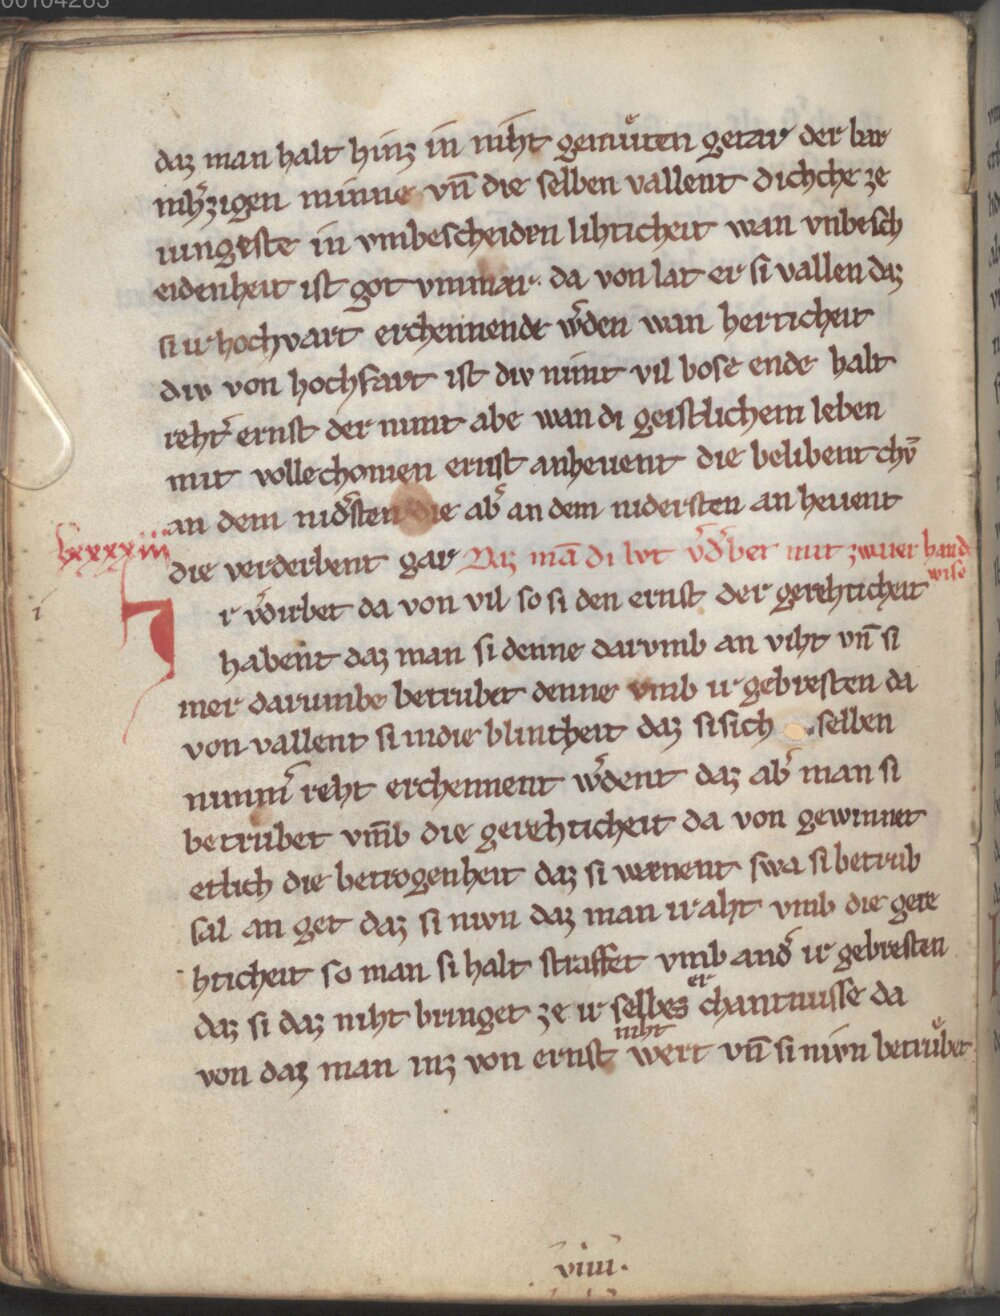 00104263
daz man halt hinz in niht gemuͤten getar der bar
mh᷑zigen minne vn̄ die selben vallent dichche ze
iungeste in vmbescheiden lihticheit wan vnbesch
eidenheit ist got vnmar. da von lat er si vallen daz
si ir hochvart erchennende w᷑den wan herticheit
div von hochfart ist div nimt vil bose ende halt
reht᷑ ernst der nimt abe wan di geistlichem leben
mit vollechomen ernst anheuent die belibent chv᷑
an dem nid᷑sten die ab᷑ an dem nidersten an heuent
lxxxxiii
die verderbent gar Daz mā di lvt v᷑d᷑bet mit zwaier hand
wise
i
Ir v᷑dirbet da von vil so si den ernst der gerehticheit
habent daz man si denne darvmb an viht vn̄ si
mer darumbe betrubet denne vmb ir gebresten da
von vallent si in die blintheit daz si sich selben
nimm᷑ reht erchennent w᷑dent daz ab᷑ man si
betrubet vm̄b die gerehticheit da von gewinnet
etlich die betrogenheit daz si wenent swa si betrub
sal an get daz si nivn daz man ir aht vmb die gere
hticheit so man si halt straffet vmb and᷑ ir gebresten
daz si daz niht bringet ze ir selbes er chantnusse da
von daz man inz von ernst niht wert vn̄ si nivn betruͤbet
viiii.